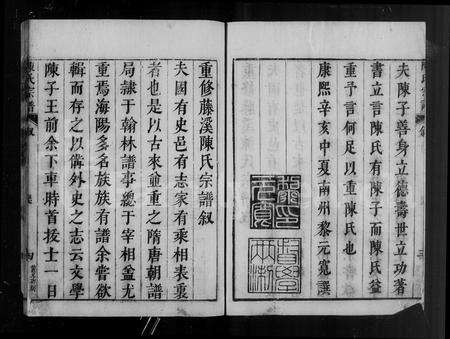 夫陳子善身立德壽世立功著
書立言陳氏有陳子而陳氏益
重予言何足以重陳氏也
康熙辛亥中夏南州黎元寬撰
重修藤溪陳氏宗譜叙
夫國有史邑有志家有乘相表裏
者也是以古來並重之隋唐朝譜
局隷于翰林譜事總于宰相蓋尤
重焉海陽多名族族有譜余嘗欲
輯而存之以備外史之志云文學
陳子王前余下車時首拔士一日
陳氏宗譜
叙